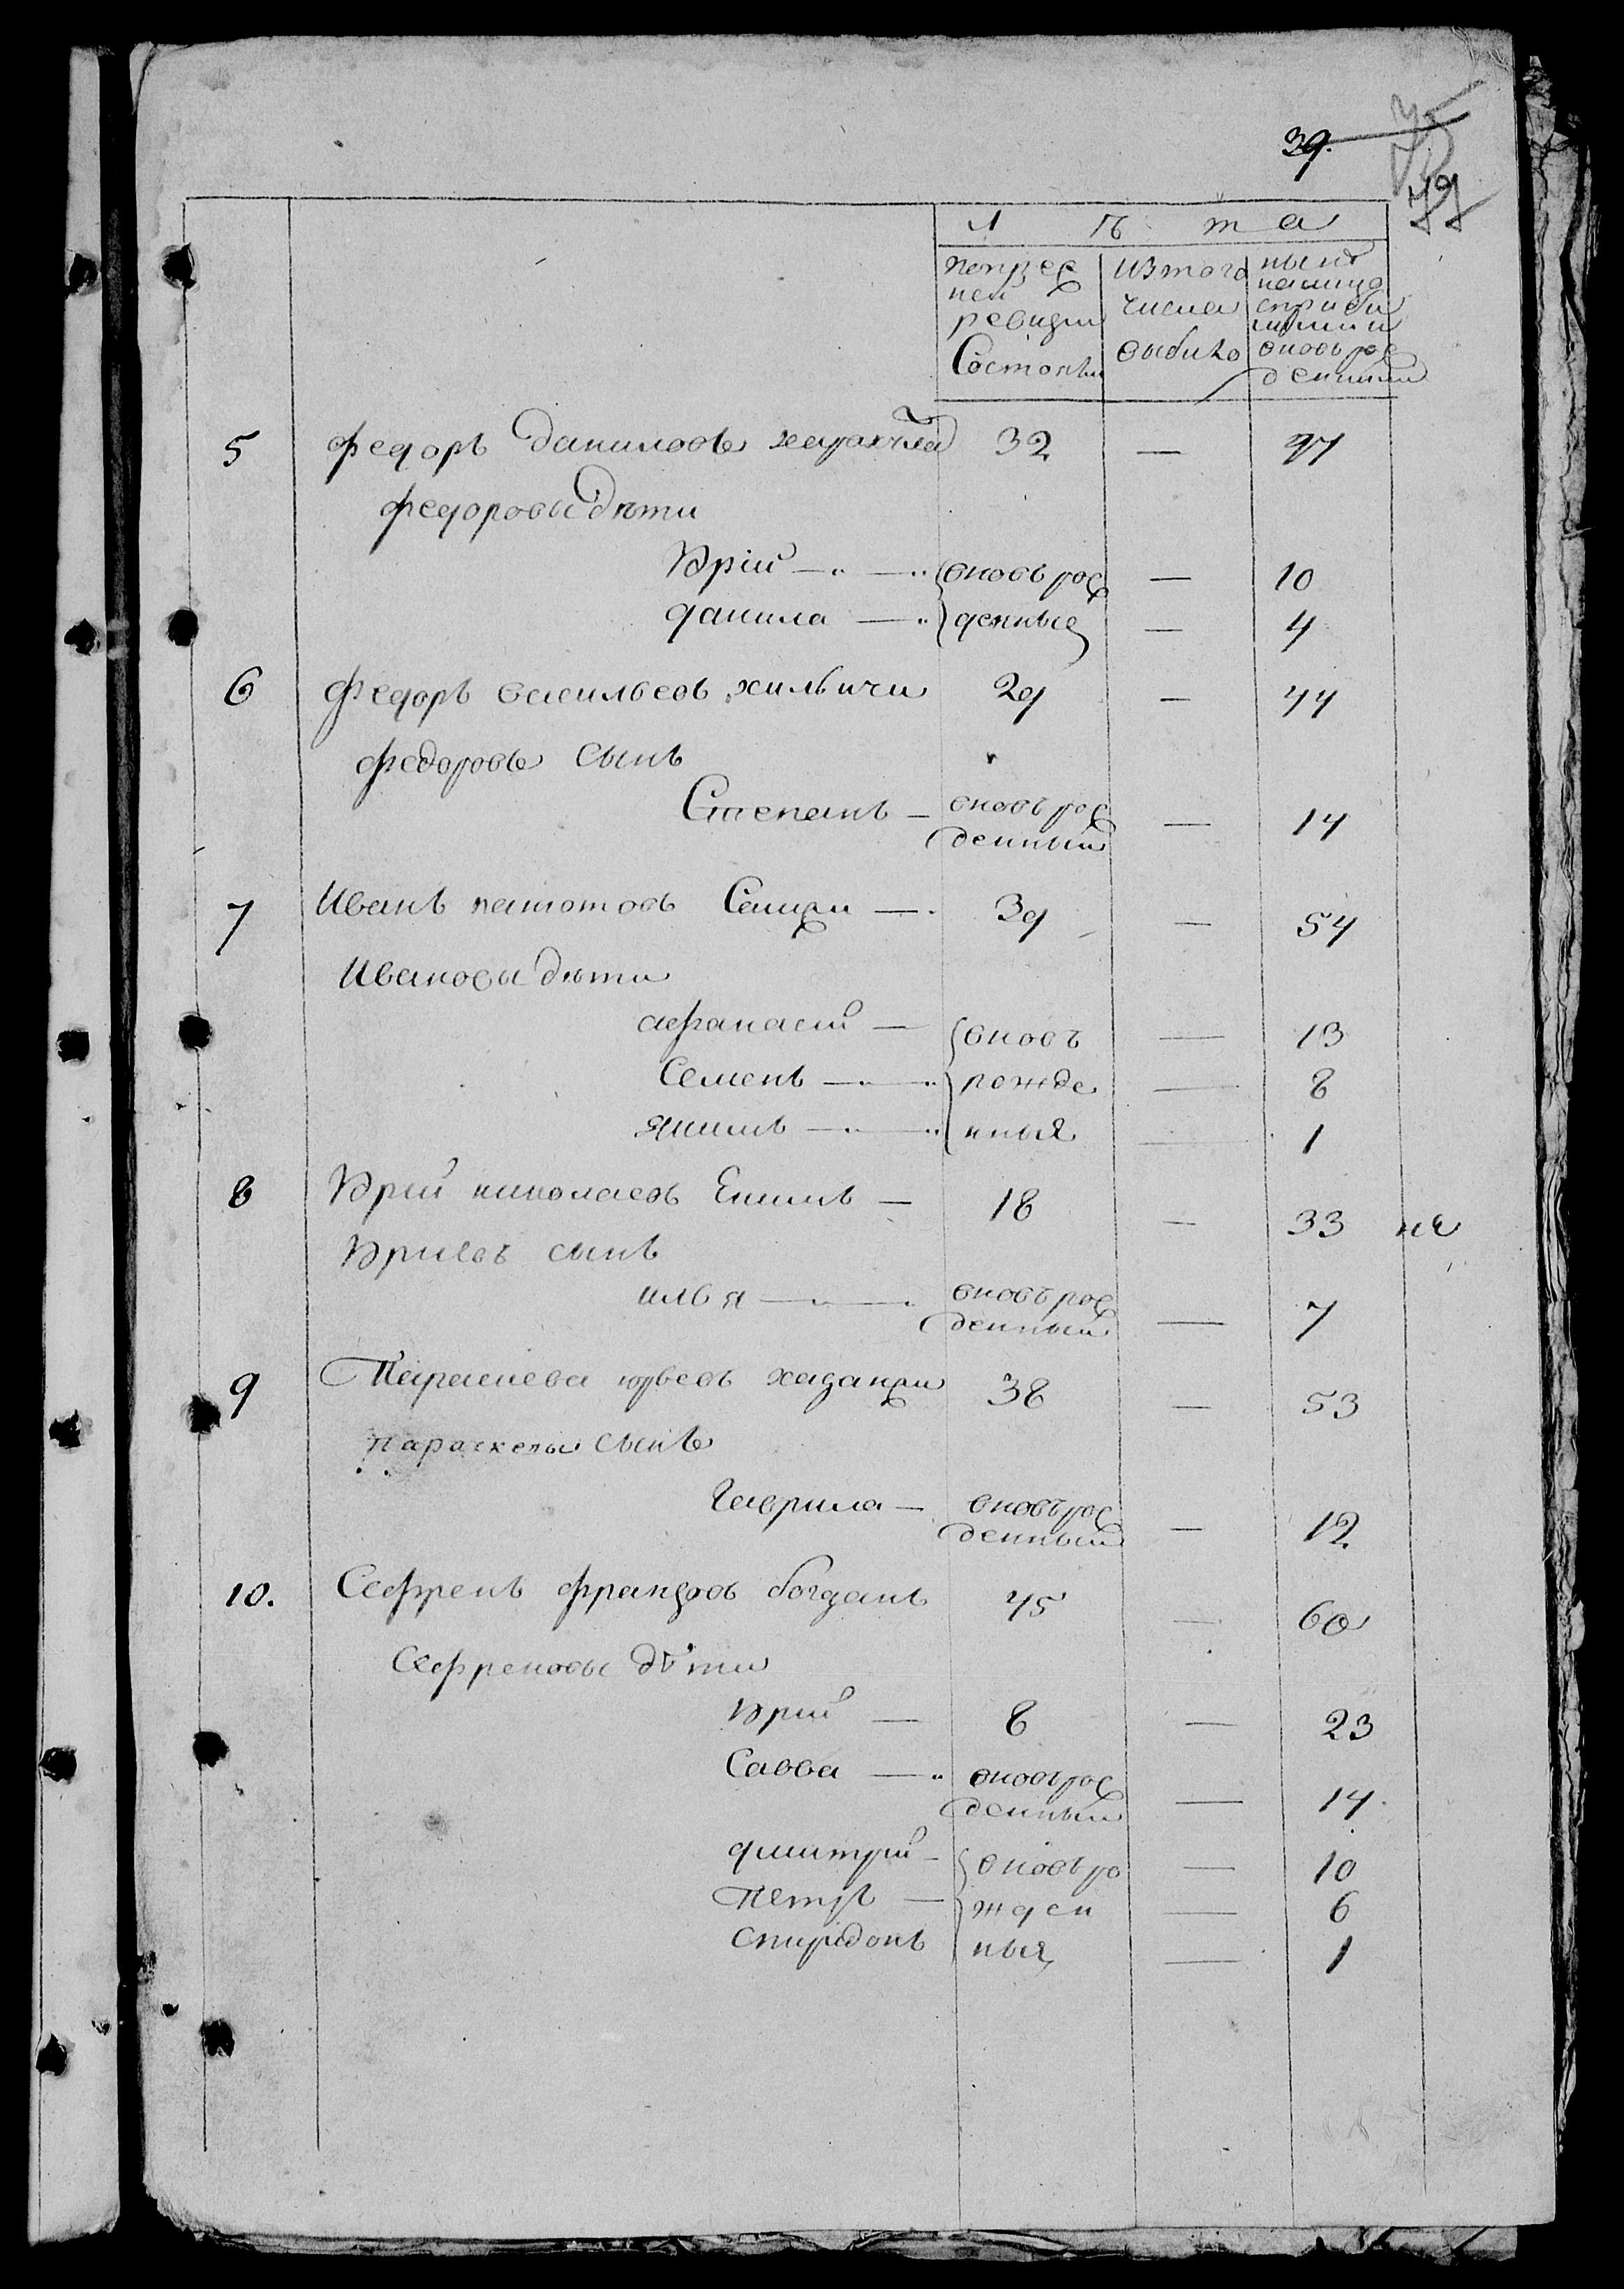 39.
79
Л ѣ т а
попред
ней
ревизии
Состояли
изтого
числа
выбыло
ныне
налицо
сприбы
лыми и
вновь рож
денными
5 федоръ даниловъ 32 — 47
федоровы дѣти
Юрій — вновь рож — 10
данила — денные — 4
6 федоръ васильевъ хильпчи 29 — 44
федоровъ сынъ
Степанъ — вновь рож
денный — 14
7 Иванъ пантотовъ Сакули — 39 — 54
Ивановы дѣти
афанасій — вновъ — 13
Семенъ — рожде — 8
якимъ — нныя — 1
8 Юрій николаевъ Екимъ — 18 — 33 не
Юриевъ сынъ
илья — вновъ рож
денный — 7
9 Параскева юрьевъ 38 — 53
параскевы сынъ
Гаврила — вновъ рож
денный — 12
10. Сефренъ францовъ богданъ 45 — 60
Сефреновы дѣти
Юрій — 8 — 23
Савва — вновъ рож
денный — 14
дмитрій — вновъ ро — 10
Петръ — жден — 6
Спиридонъ ныя — 1